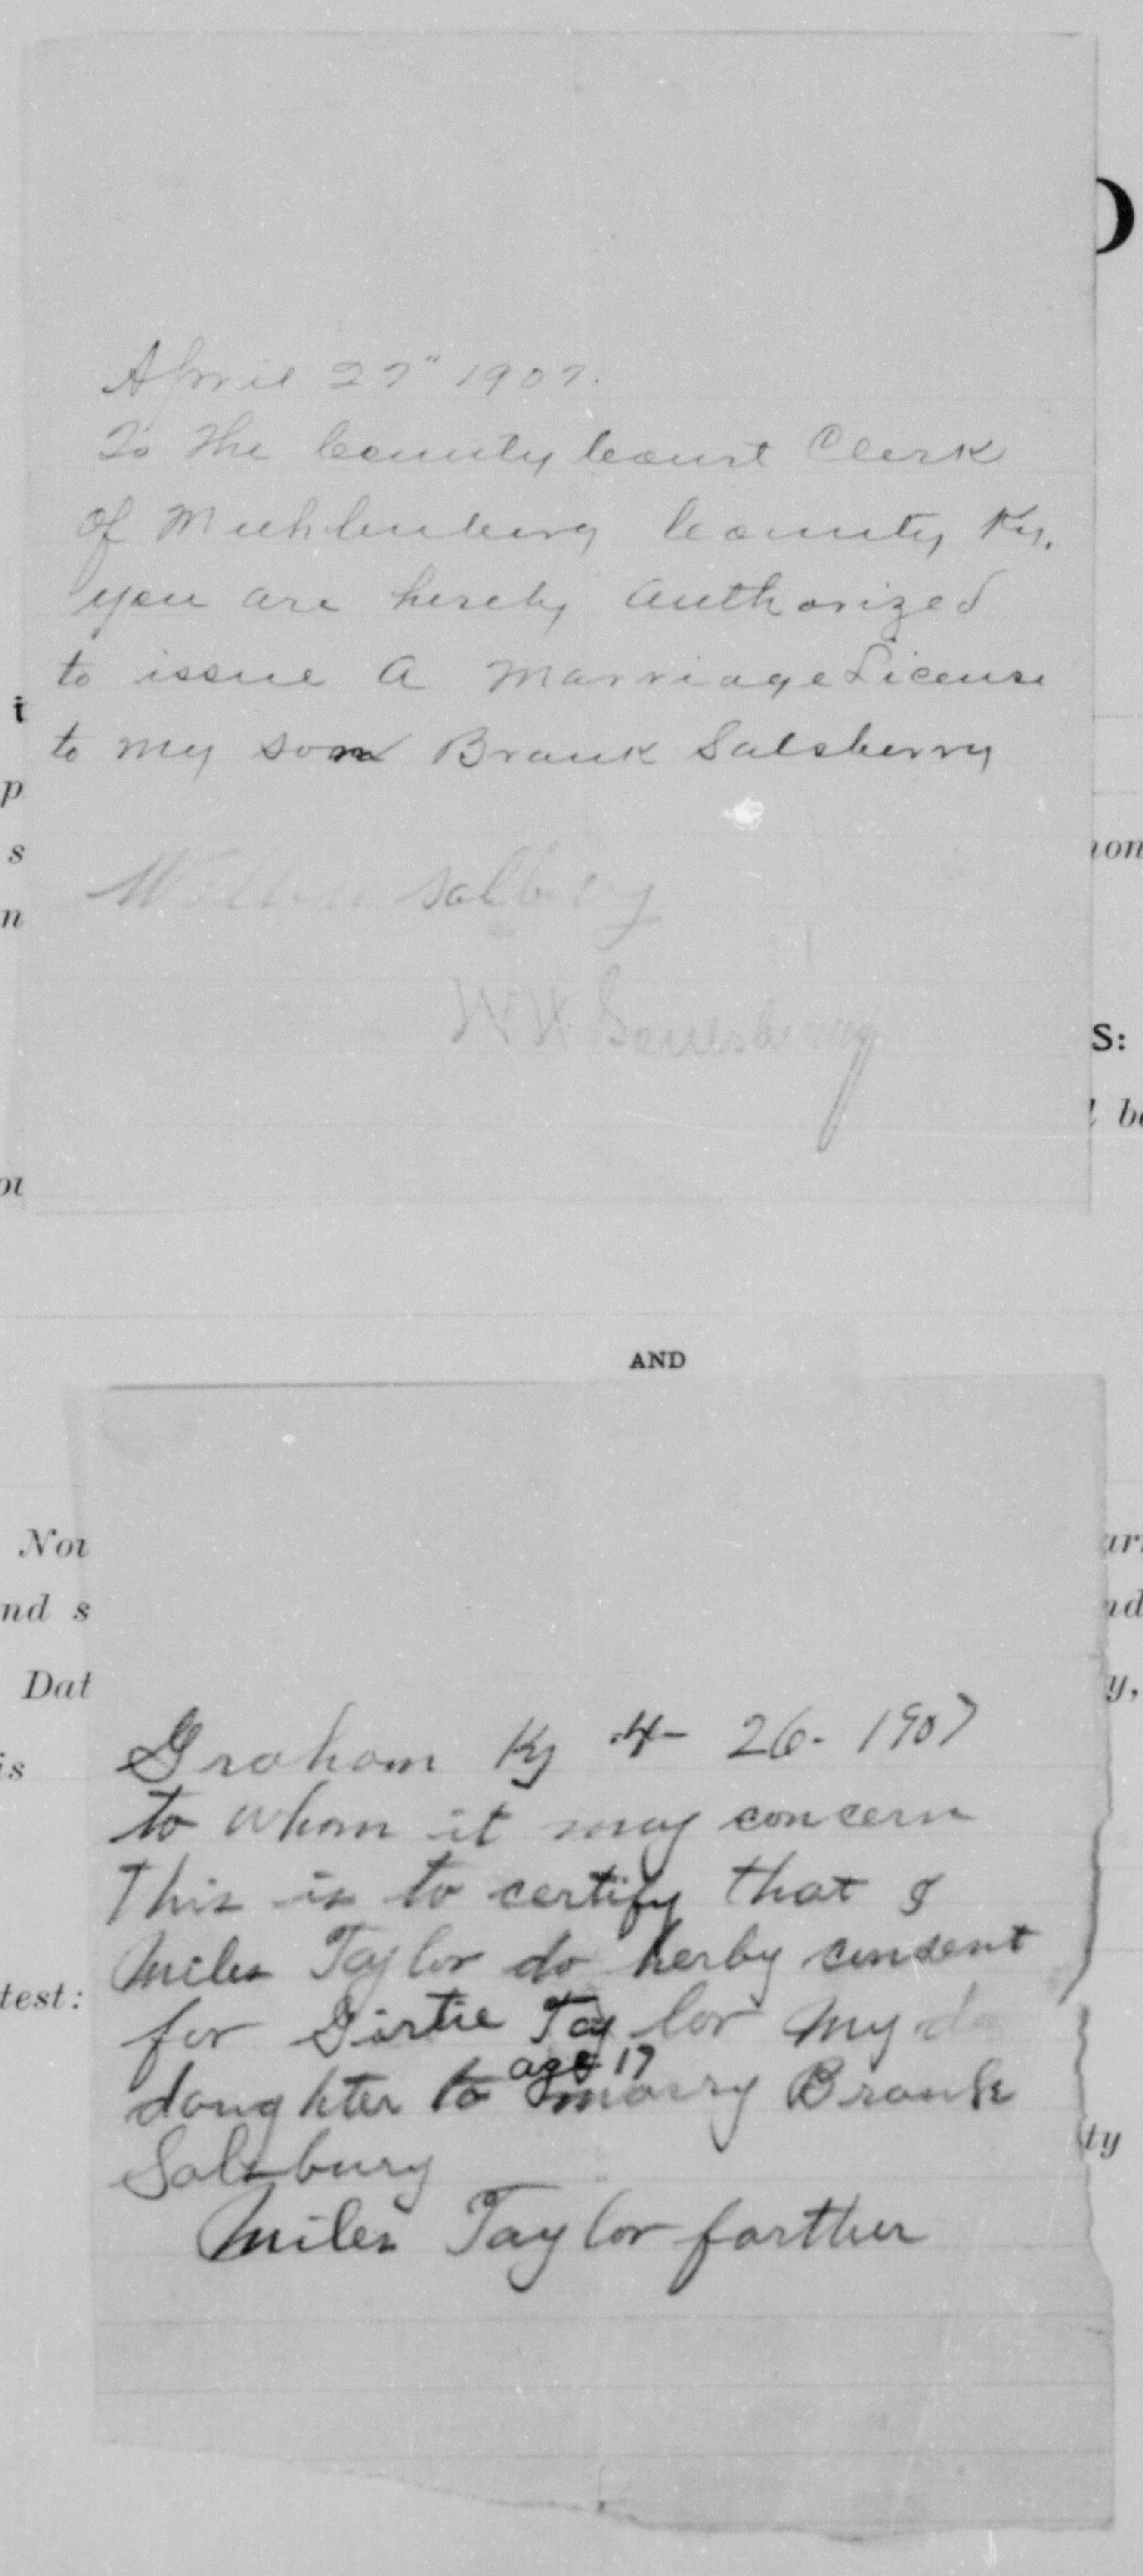 D
April 27" 1907.
To The County Court Clerk
of Muhlenberg County Ky.
you are hereby authorized
to issue a Marriage License
i
to my son Brank Salsberry
p
s
non
n
Salbery
W H
S:
l be
ou
AND
Nov
ar
nd s
nd
Dat
y,
Graham Ky 4- 26- 1907
is
to whom it may concern
This is to certify that I
Miles Taylor do herby consent
test:
for Girtie Taylor My da
age 17
daughter to marry Brank
ty
Salsbury
Miles Taylor farther